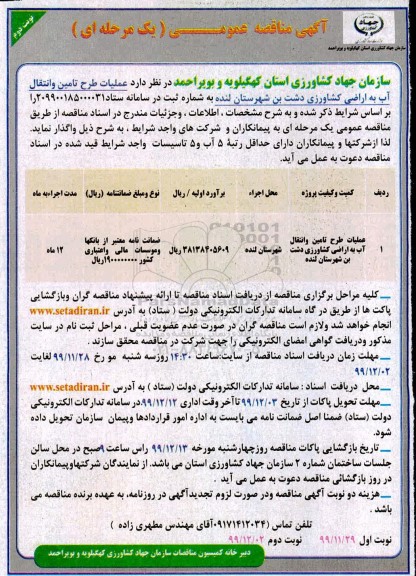 نوبت دوم
آگهی مناقصه عمومی ( یک مرحله ای )
جهاد کشاورزی
سازمان جهاد کشاورزی استان کهگیلویه و بویراحمد
سازمان جهاد کشاورزی استان کهگیلویه و بویراحمد در نظر دارد عملیات طرح تامین وانتقال
آب به اراضی کشاورزی دشت بن شهرستان لنده به شماره ثبت در سامانه ستاد۲۰۹۹۰۰۱۸۵۰۰۰۰۳۱را
بر اساس شرایط ذکر شده و به شرح مشخصات ، اطلاعات ، وجزئیات مندرج در اسناد مناقصه از طریق
مناقصه عمومی یک مرحله ای به پیمانکاران و شرکت های واجد شرایط ، به شرح ذیل واگذار نماید.
لذا ازشرکتها و پیمانکاران دارای حداقل رتبهٔ ۵ آب و۵ تاسیسات واجد شرایط قید شده در اسناد
مناقصه دعوت به عمل می آید.
ردیف کمیت وکیفیت پروژه محل اجراء برآورد اولیه / ریال نوع ومبلغ ضمانتنامه (ریال) مدت اجراءبه ماه
۱ عملیات طرح تامین وانتقال آب به اراضی کشاورزی دشت بن شهرستان لنده شهرستان لنده ۳۸۱۳۸۴۰۵۶۰۹ ریال ضمانت نامه معتبر از بانکها وموسسات مالی واعتباری کشور ۱۹۰۰۰۰۰۰۰۰ریال ۱۲ ماه
کلیه مراحل برگزاری مناقصه از دریافت اسناد مناقصه تا ارائه پیشنهاد مناقصه گران وبازگشایی
پاکت ها از طریق در گاه سامانه تدارکات الکترونیکی دولت ( ستاد) به آدرس www.setadiran.ir
انجام خواهد شد ولازم است مناقصه گران در صورت عدم عضویت قبلی ، مراحل ثبت نام در سایت
مذکور ودریافت گواهی امضای الکترونیکی را جهت شرکت در مناقصه محقق سازند .
مهلت زمان دریافت اسناد مناقصه از سایت:ساعت ۱۴:۳۰ روزسه شنبه مو رخ ۹۹/۱۱/۲۸ لغایت
۹۹/۱۲/۰۲
محل دریافت اسناد : سامانه تدارکات الکترونیکی دولت (ستاد ) به آدرس www.setadiran.ir
مهلت تحویل پاکات از تاریخ ۹۹/۱۲/۰۳ تاآخر وقت اداری ۹۹/۱۲/۱۲درسامانه تدارکات الکترونیکی
دولت (ستاد) ضمنا اصل ضمانت نامه می بایست به اداره امور قراردادها وپیمان سازمان تحویل داده
شود.
تاریخ بازگشایی پاکات مناقصه روزچهارشنبه مورخه ۹۹/۱۲/۱۳ راس ساعت ۹صبح در محل سالن
جلسات ساختمان شماره ۲ سازمان جهاد کشاورزی استان می باشد. از نمایندگان شرکتهاوپیمانکاران
در روز بازگشائی مناقصه دعوت به عمل می آید .
هزینه دو نوبت آگهی مناقصه ودر صورت لزوم تجدیدآگهی در روزنامه، به عهده برنده مناقصه می
باشد .
تلفن تماس (۰۹۱۷۱۴۱۲۰۳۴آقای مهندس مطهری زاده )
نوبت اول ۹۹/۱۱/۲۹ نوبت دوم ۹۹/۱۲/۰۲
دبیر خانه کمیسیون مناقصات سازمان جهاد کشاورزی کهگیلویه و بویراحمد